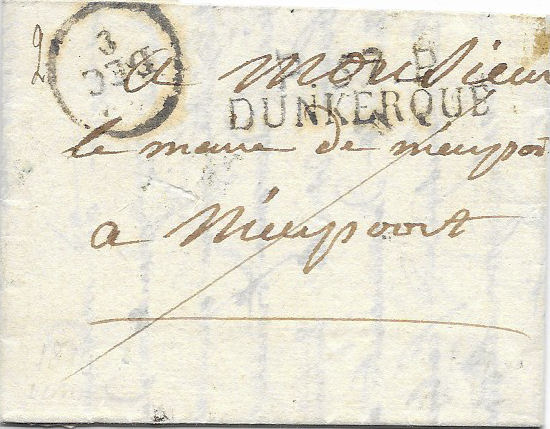 2
3
DEC
a Monsieur
P. 57. P.
DUNKERQUE
le maire de nieupoort
a Nieupoort